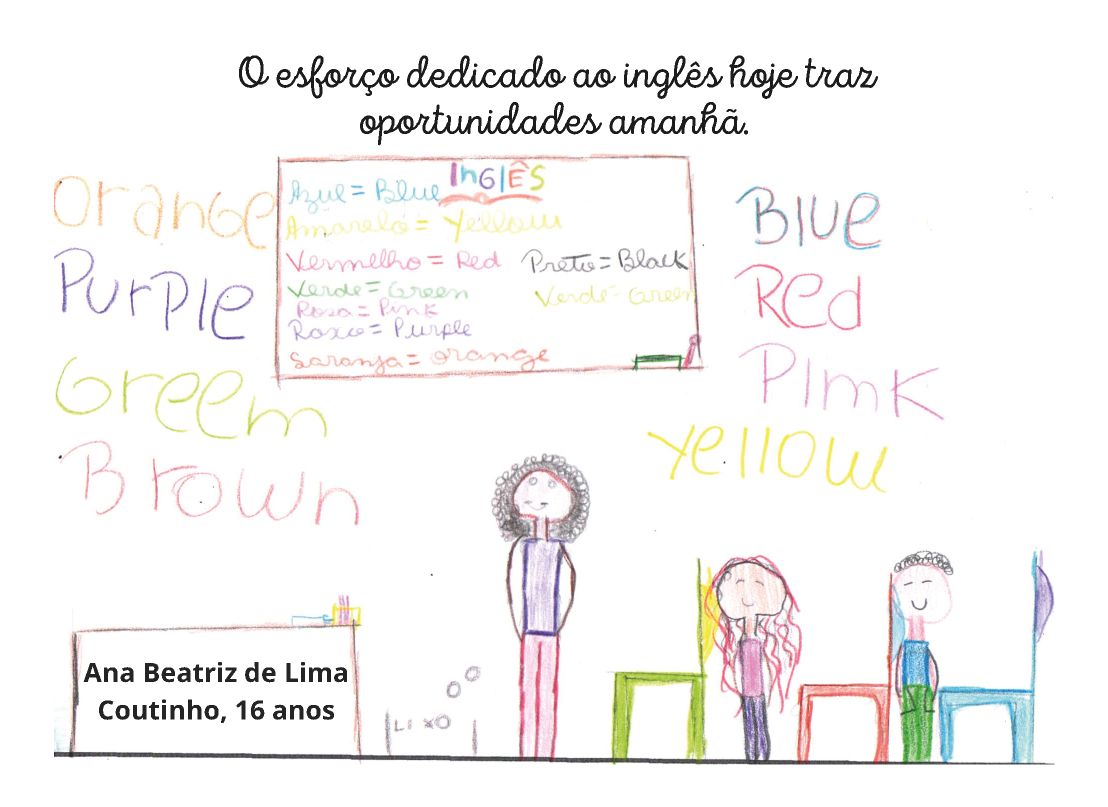 O esforço dedicado ao inglês hoje traz
oportunidades amanhã.
Orange
Purple
Greem
Brown
InGlÊS
Azul = Blue
Amarelo = Yellow
Vermelho = Red
Preto = Black
Verde = Green
Verde = Green
Rosa = Pink
Roxo = Purple
Laranja = orange
Blue
Red
Pimk
Yellow
Ana Beatriz de Lima
Coutinho, 16 anos
LIXO